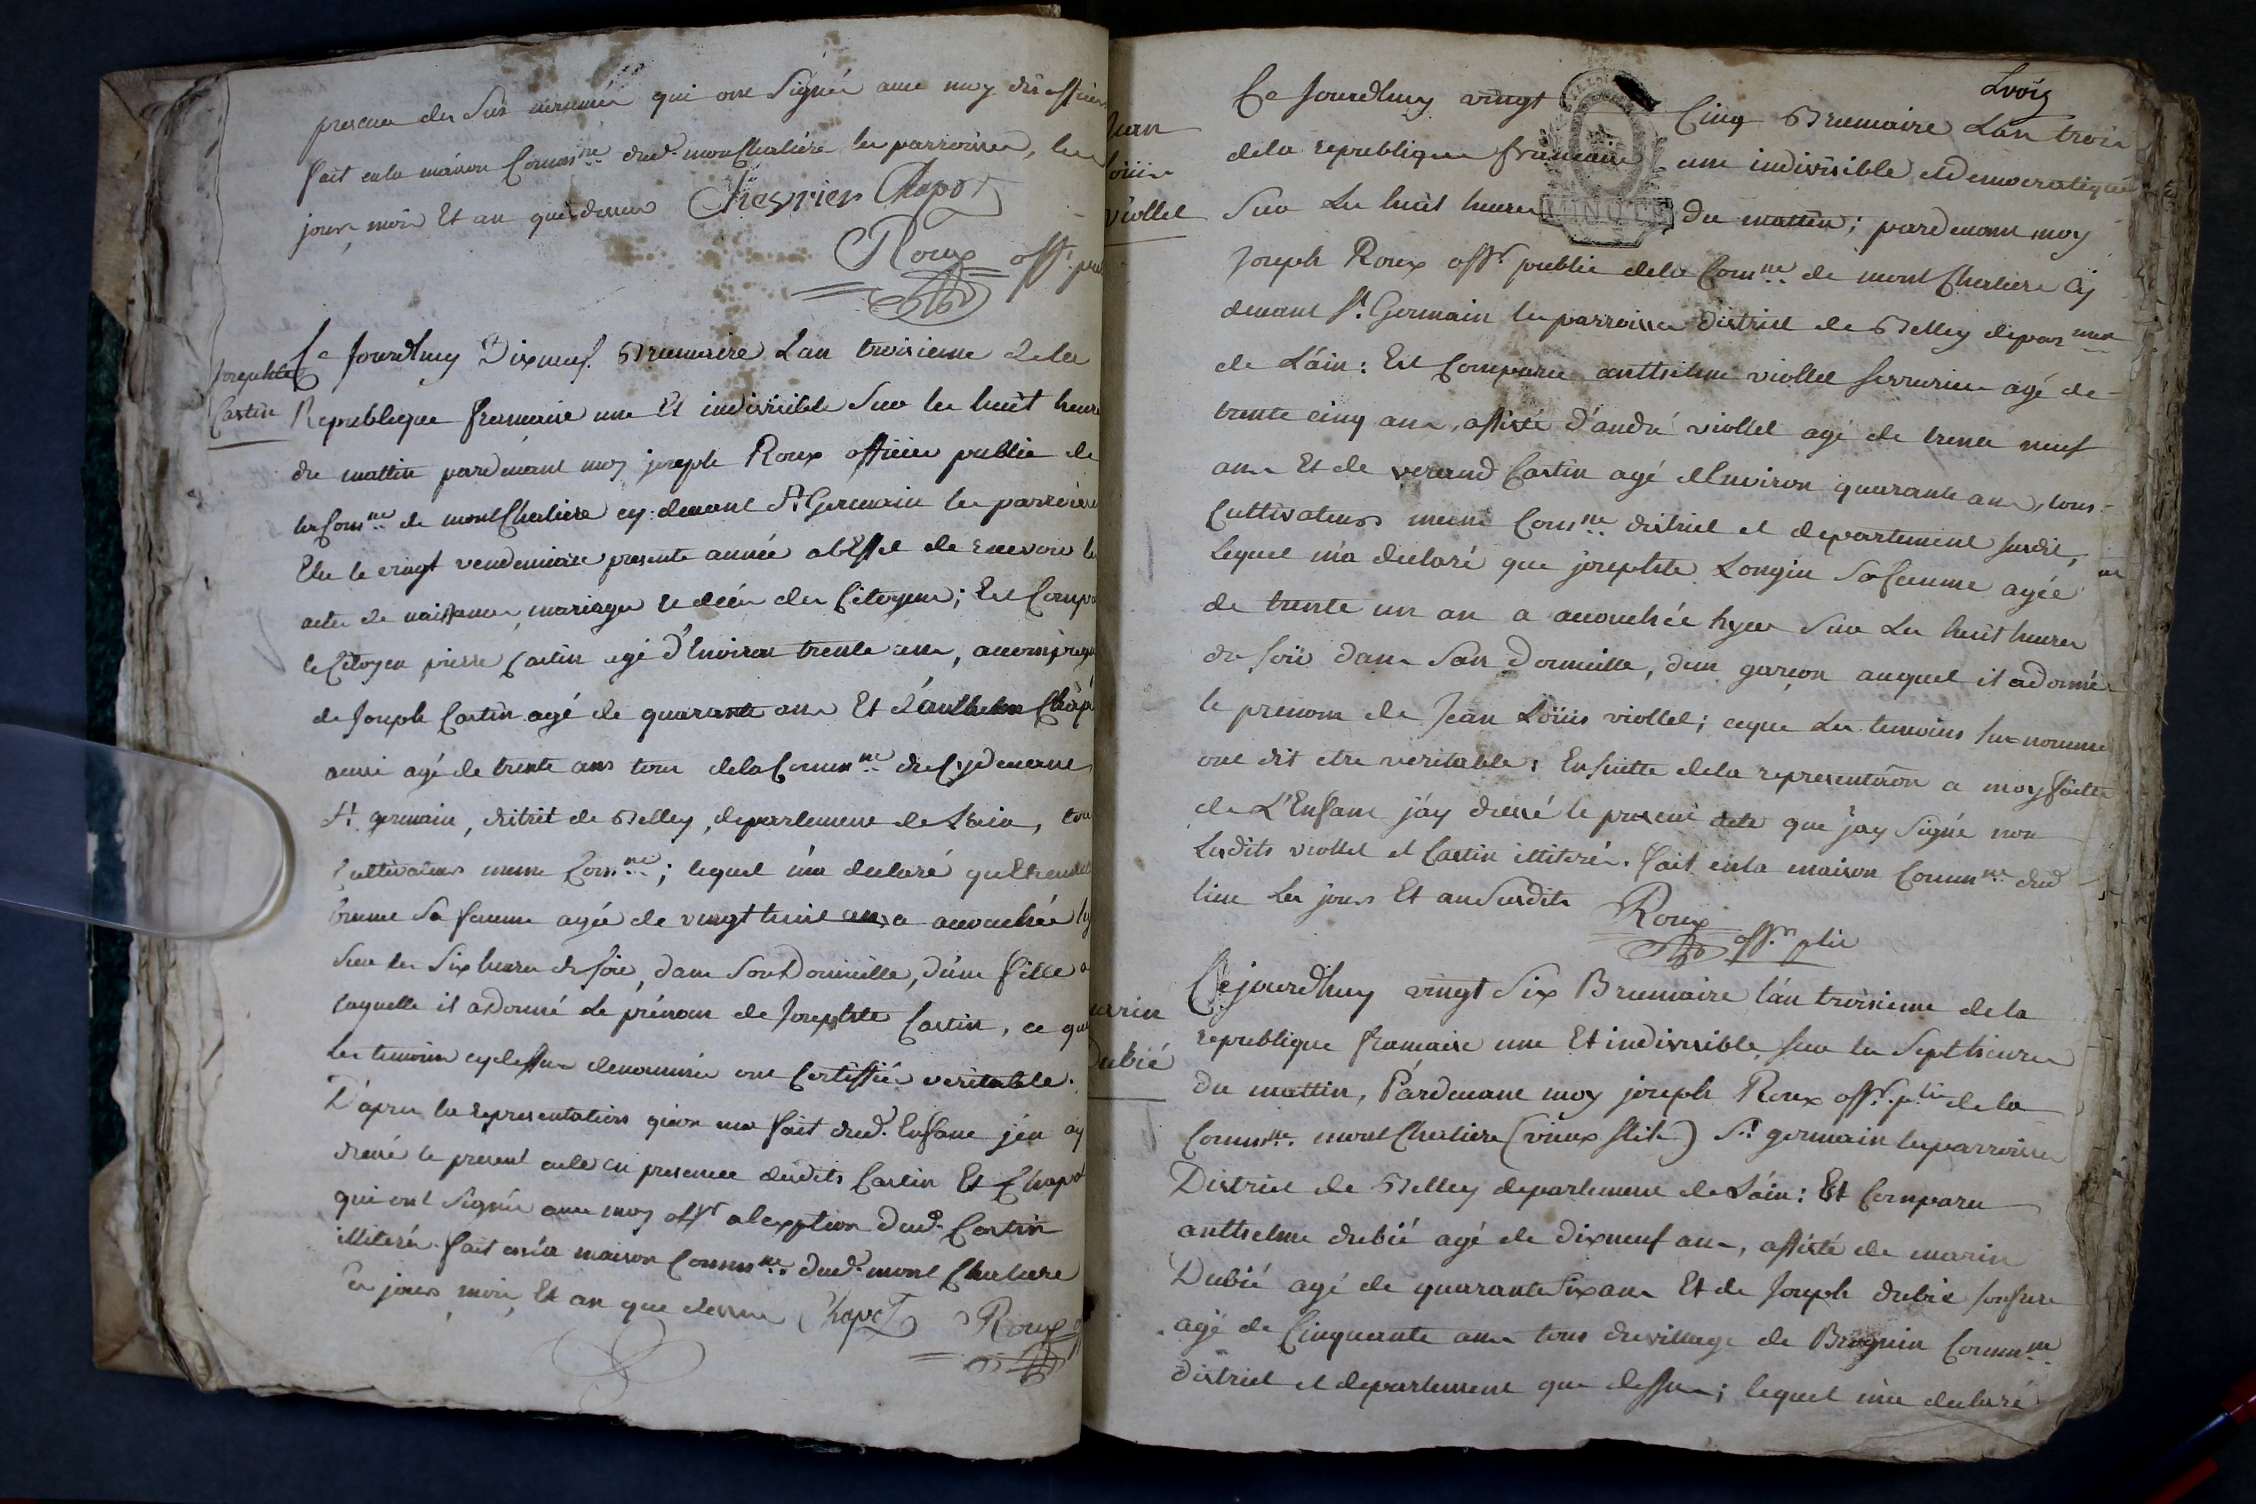 presence des sus nommés qui ont Signés avec moy dit officier
fait en la maison Commne dud. montChaliere les parroisses, les
jours, mois Et an que dessus Chesvrier Chapot
Roux offr. pub
Josephte
Castin
Ce Jourdhuy Dixneuf Brumaire L'an troisieme de la
Republique francaise une Et indivisible Sur les huit heures
du mattin pardevant moy joseph Roux officier public de
la Comne de montChaliere cy devant St Germain les parroisses
Elu le vingt vendemiaire presente année a l'Effet de recevoir les
actes de naissances, mariages et décès des Citoyens; Est Comparu
le Citoyen pierre Castin agé d'Environ trente ans, accompagné
de Joseph Castin agé de quarante ans Et d'anthelme Chapot
aussi agé de trente ans tous de la Commne du Cy devant
St germain, district de Belley, departement de L'ain, tous
Cultivateurs meme Comne; lequel m'a declaré qu'
sa femme agée de vingt huit ans a accouchée
Sur les Six heures du soir, dans Son Domicille, d'une fille a
laquelle il a Donné Le prénom de Josephte Castin, ce que
les temoins cy dessus denommés ont Certiffiés veritable.
D'apres la representation qu'on ma fait dud. Enfant j'en ay
dressé le present acte en presence desdits Castin Et Chapot
qui ont Signés avec moy offr a l'exption dud. Castin
illiteré. fait en la maison Commne dud. mont Chaliere
les jours, mois, Et an que dessus Chapot Roux
Lvois
Jean
Loüis
Viollet
Ce Jourdhuy vingt Cinq Brumaire L'an trois
de la republique francaise une indivisible et democratique
Sur Les huit heures du mattin; pardevant moy
MINUTE
Joseph Roux offr. public de la Comne de mont Chaliere Cy
devant St. Germain les parroisses district de Belley deparmen
de L'ain: Est Comparu anthelme viollet serrurier agé de
trente cinq ans, assisté d'andré viollet agé de trente neuf
ans Et de verand Castin agé d'Environ quarante ans, tous
Cultivateurs meme Comne district et departement susdit,
Lequel m'a declaré que josephte Longin Sa femme agée
de trente un an a accouchée hyer Sur Les huit heures
du soir dans San Domicille, d'un garçon auquel il a donné
le prenom de Jean Loüis viollet; ceque Les temoins sus nommé
ont dit etre veritable. En suitte de la representation a moy faite
de L'Enfant j'ay dressé le present acte que j'ay Signé non
Lesdits viollet et Castin illiterés. fait en la maison Commne dud
lieu Les jours Et an Susdits
Roux offr plic
marin
Dubié
Cejourdhuy vingt Six Brumaire l'an troisieme de la
republique francaise une Et indivisible, sur les Sept heures
du mattin, Pardevant moy joseph Roux offr. plic de la
Commne. mont Chaliere (vieux stile) St. germain les parroisses
District de Belley departement de L'ain: Est Comparu
anthelme dubié agé de dixneuf ans, assisté de marin
Dubié agé de quarante six ans Et de Joseph dubié son frere
agé de Cinquante ans tous du village de Brognin Commne
district et departement que dessus; lequel m'a declaré